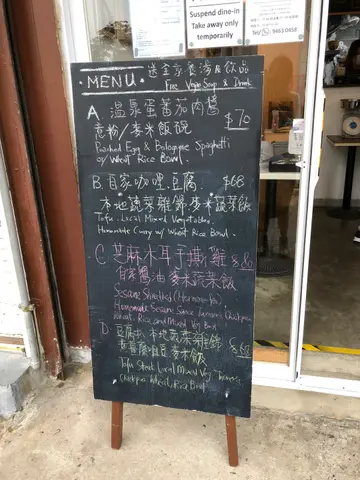 Suspend dine-in
Take away only
temporarily
9403 0458
MENU.
Free Vegan Soup & Drink
A 溫泉蛋蕃茄肉醬 $70
意粉/麥米飯碗
Poached Egg & Bolognese Spaghetti
w/ Wheat Rice Bowl.
B 自家咖喱豆腐 $68
本地蔬菜雜錦麥米蔬菜飯
Tofu. Local Mixed Vegetables.
Homemade Curry w/ Wheat Rice Bowl.
C 芝麻木耳手撕雞
自家醬油麥米蔬菜飯
Sesame Shredded
Homemade Sesame Sauce Chickpea
Wheat Rice and Mixed Veg Bowl
D 豆腐 本地蔬菜雜錦
麥米飯
Tofu Local Mixed Veg
Chickpea Wheat Rice Bowl